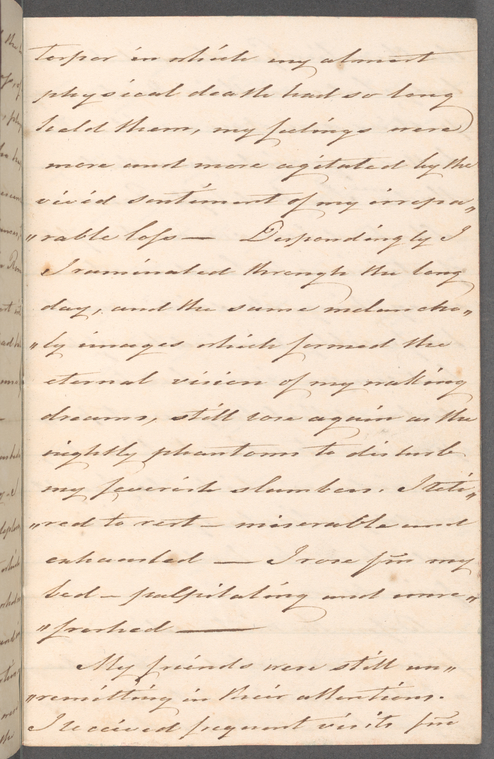 torpor in which my almost
physical death had so long
held them, my feelings were
more and more agitated by the
vivid sentiment of my irrepa„
„rable loss — Despondingly I
I ruminated through the long
day, and the same melancho„
„ly images which formed the
eternal vision of my waking
dreams, still rose again as the
nightly phantoms to disturb
my feverish slumbers. I reti„
„red to rest — miserable and
exhausted — I rose fm my
bed — palpitating and unre„
„freshed —
My friends were still un„
„remitting in their attentions.
I received frequent visits fm